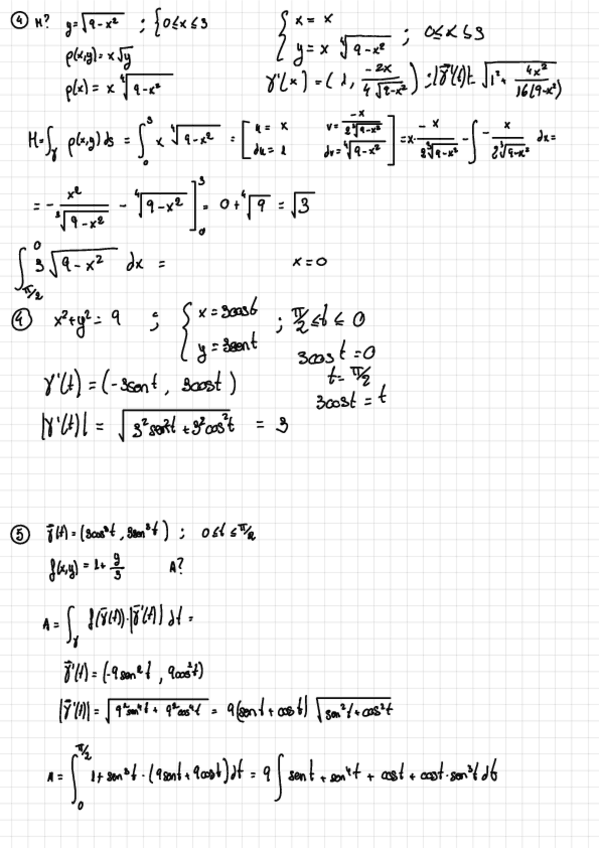 ④ M? y=√(9-x²) ; {0≤x≤3 { x = x
ρ(x,y) = x√y y = x ∜(9-x²) ; 0≤x≤3
ρ(x) = x ∜(9-x²) γ'(x) = (1, -2x/(4√(9-x²))) ; |γ'(t)|= √(1² + 4x²/(16(9-x²)))
M=∫γ ρ(x,y) ds = ∫₀³ x ∜(9-x²) = [ u = x
du = 1
= - x²/√(9-x²) - ∜(9-x²) ]₀³ = 0 + ∜9 = √3
∫_{π/2}^0 3 √(9-x²) dx = x=0
④ x²+y² = 9 ; { x = 3cost
y = 3sent ; π/2 ≤t≤ 0
3cos t = 0
γ'(t) = (-3sent, 3cost) t= π/2
3cost = t
|γ'(t)| = √(3²sen²t + 3²cos²t) = 3
⑤ γ̄(t) = (3cos³t, 3sen³t) ; 0≤t≤π/2
f(x,y) = 1+ y/3 A?
A = ∫γ f(γ̄(t))·|γ̄'(t)| dt =
γ̄'(t) = (-9sen²t, 9cos²t)
|γ̄'(t)| = √(9²sen⁴t + 9²cos⁴t) = 9(sent + cost) √(sen²t + cos²t)
A = ∫₀^{π/2} 1+sen³t · (9sent + 9cost) dt = 9 ∫ sent + sen⁴t + cost + cost·sen³t dt